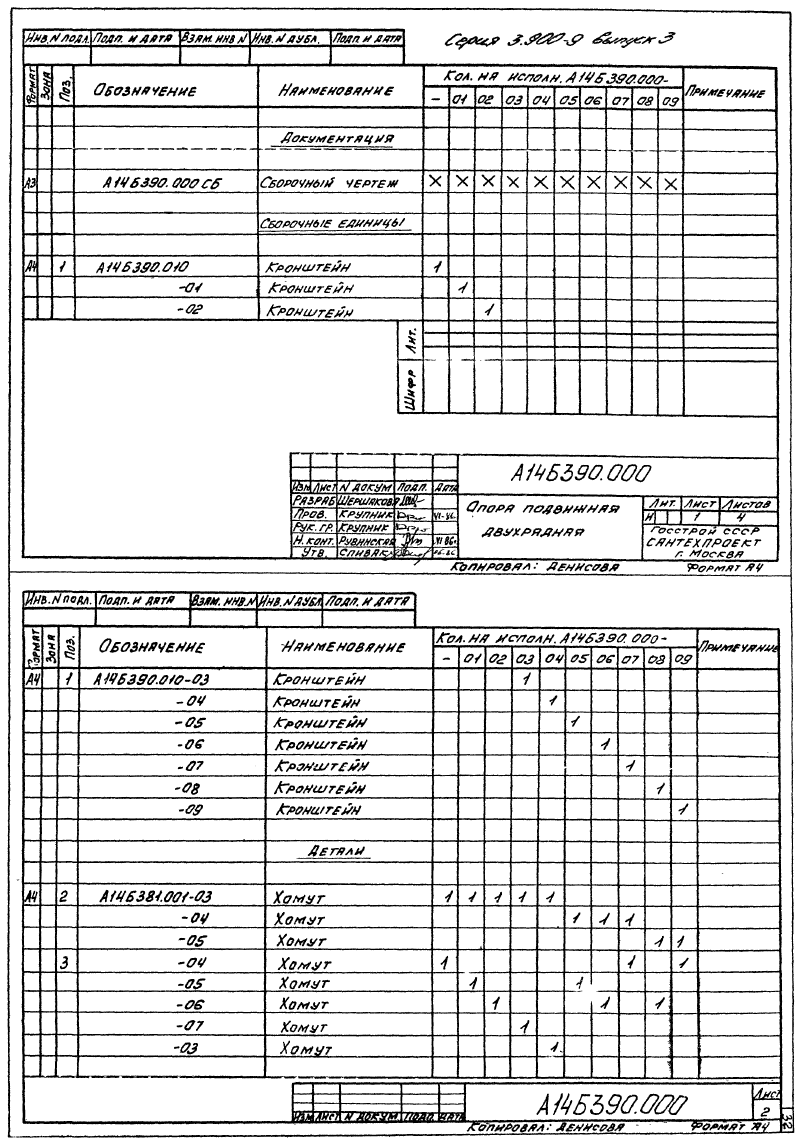 Серия 3.900-9 Выпуск 3
Инв.N подл. Подп. и дата Взам. инв N Инв.N дубл. Подп. и дата
Формат Зона Поз. Обозначение Наименование Кол. на исполн. А14Б390.000- Примечание
- 01 02 03 04 05 06 07 08 09
Документация
А3 А14Б390.000 СБ Сборочный чертеж X X X X X X X X X X
Сборочные единицы
А4 1 А14Б390.010 Кронштейн 1
-01 Кронштейн 1
-02 Кронштейн 1
Лит.
Шифр
А14Б390.000
Изм Лист N докум Подп. Дата
Разраб Шершакова
Пров. Крупник VI-86.
Рук.гр. Крупник
Н. конт. Рувинская VI 86
Утв. Спивак
Опора подвижная
двухрядная
Лит. Лист Листов
И 1 4
Госстрой СССР
Сантехпроект
г. Москва
Копировал: Денисова Формат А4
Инв.N подл. Подп. и дата Взам. инв.N Инв.N дубл Подп. и дата
Формат Зона Поз. Обозначение Наименование Кол. на исполн. А14Б390.000- Примечание
- 01 02 03 04 05 06 07 08 09
А4 1 А14Б390.010-03 Кронштейн 1
-04 Кронштейн 1
-05 Кронштейн 1
-06 Кронштейн 1
-07 Кронштейн 1
-08 Кронштейн 1
-09 Кронштейн 1
Детали
А4 2 А14Б381.001-03 Хомут 1 1 1 1 1
-04 Хомут 1 1 1
-05 Хомут 1 1
3 -04 Хомут 1 1 1
-05 Хомут 1 1
-06 Хомут 1 1 1
-07 Хомут 1
-03 Хомут 1
Изм Лист N докум Подп. Дата
А14Б390.000
Лист
2
Копировал: Денисова Формат А4
32